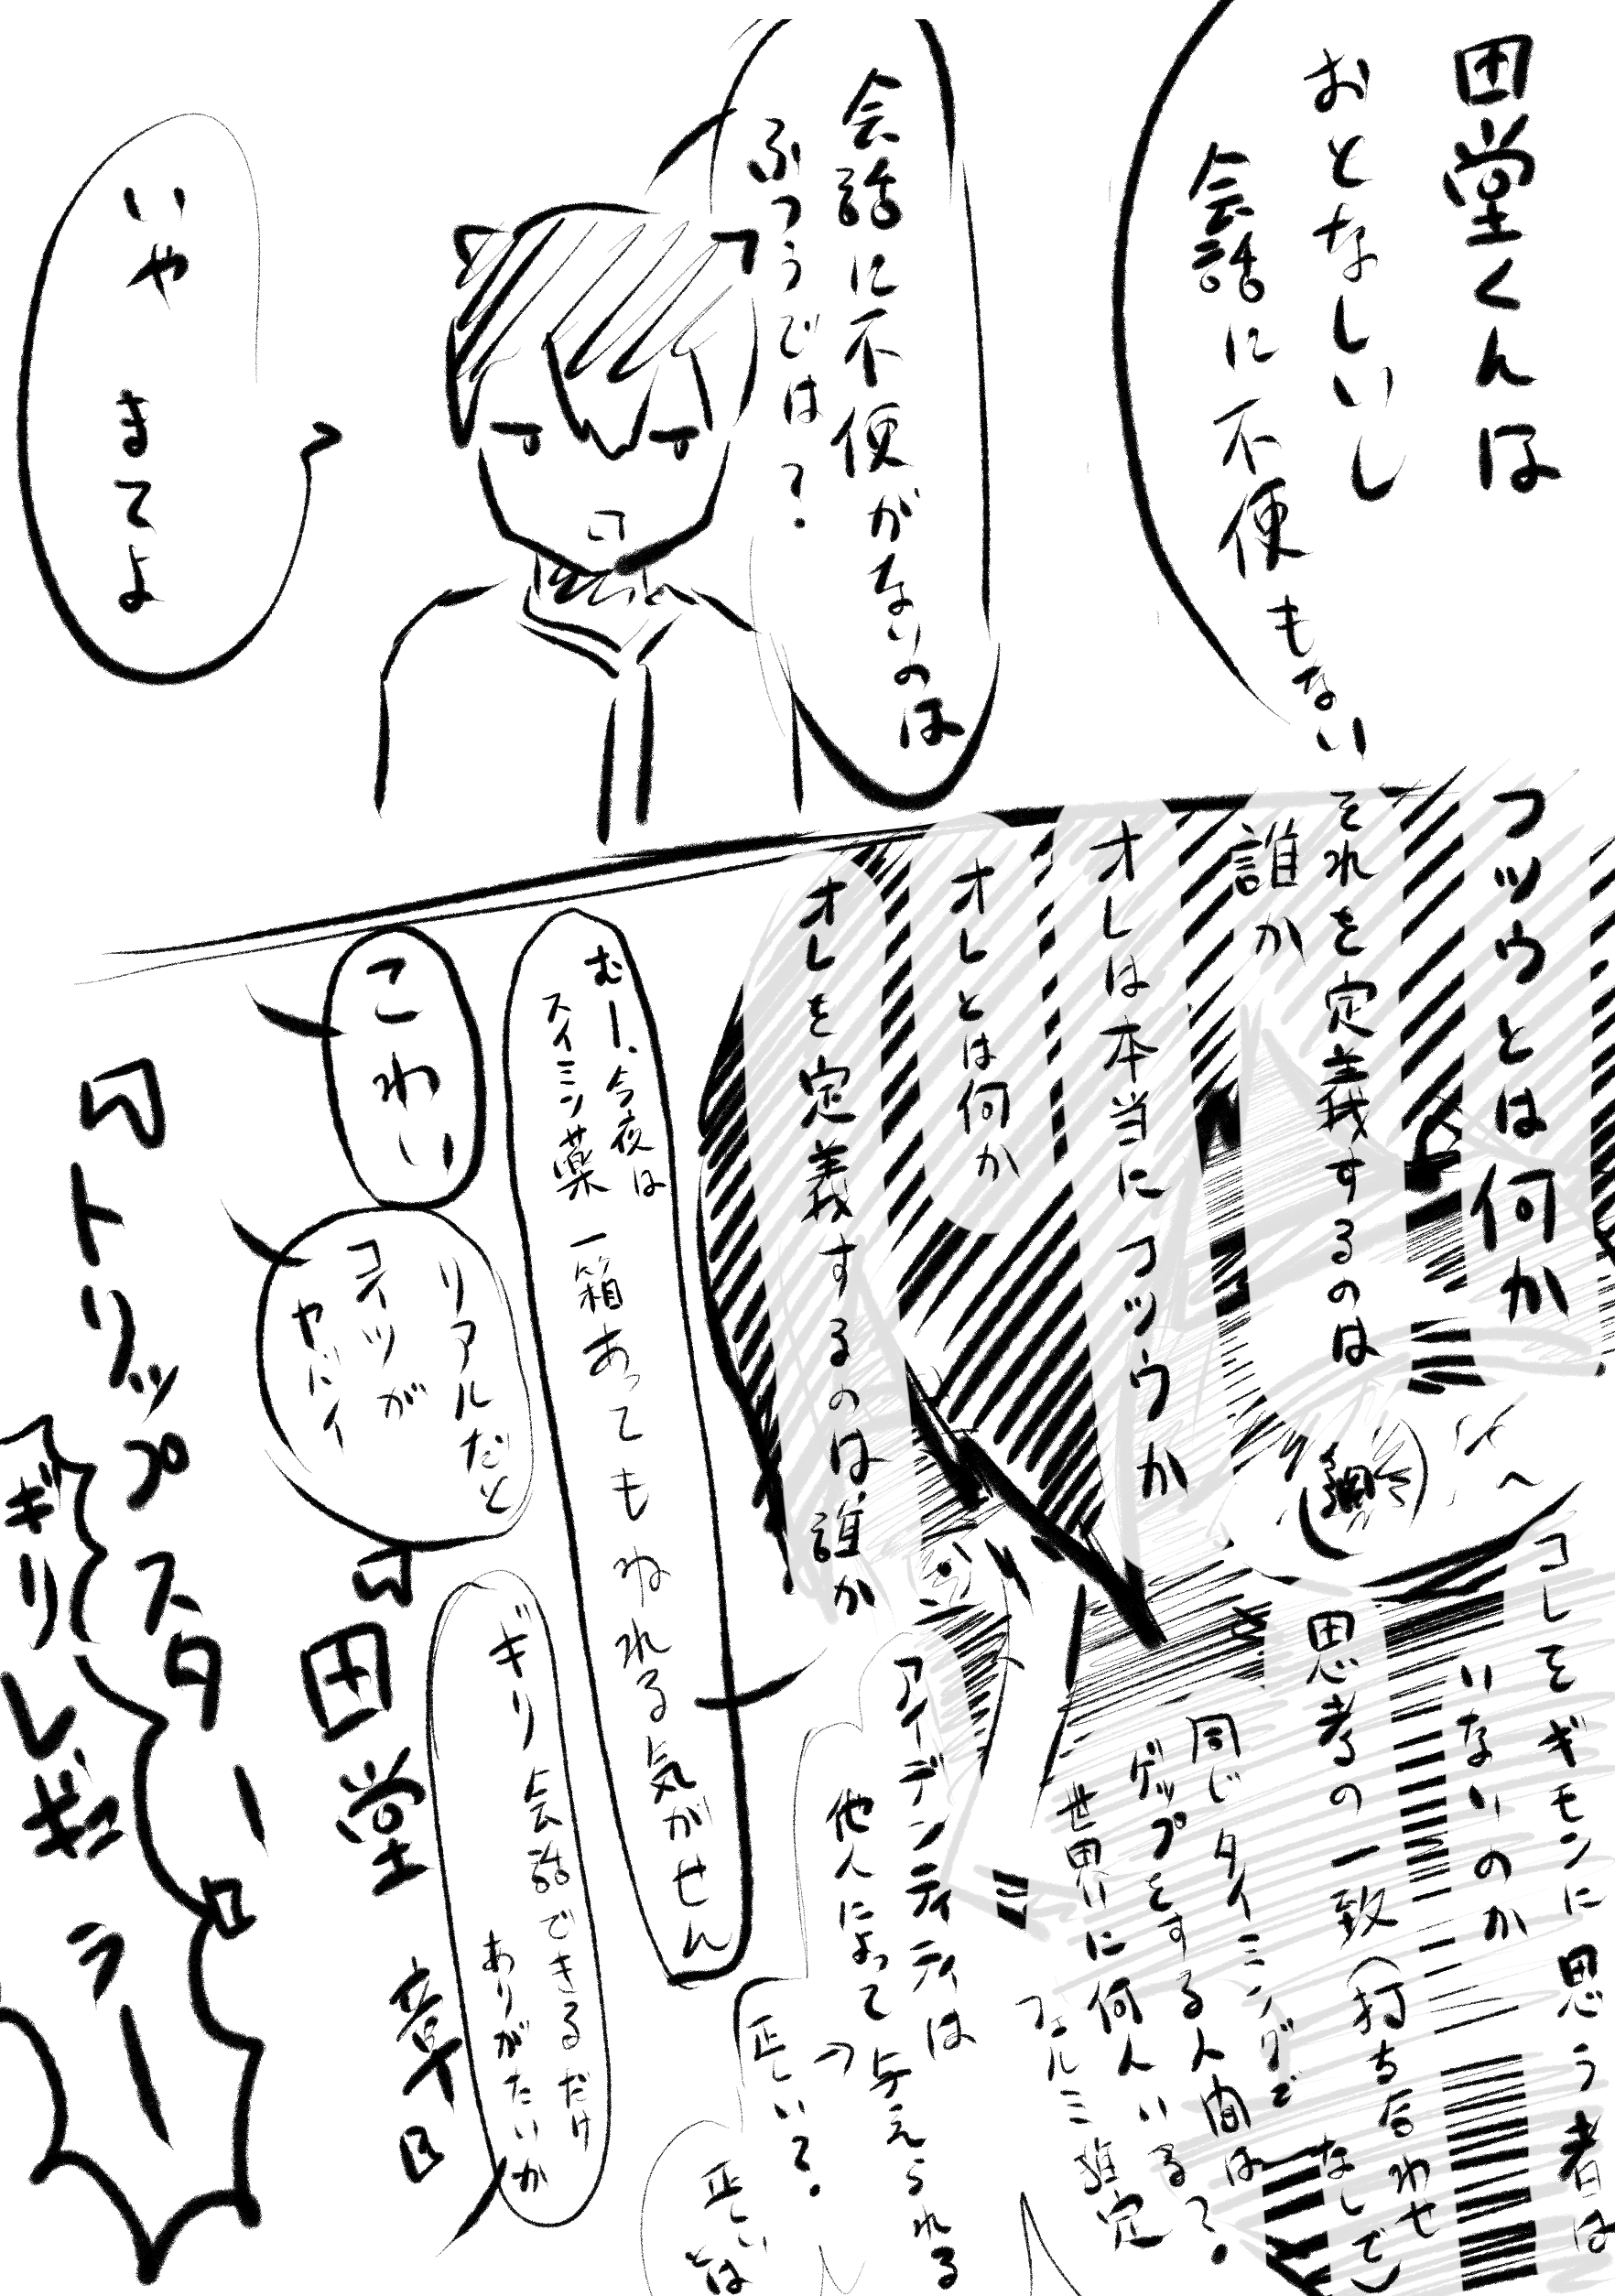 田堂くんは
おとなしいし
会話に不便もない
会話に不便がないのは
ふつうでは?
いや
まてよ
フツウとは何か
それを定義するのは
誰か
オレは本当にフツウか
オレとは何か
オレを定義するのは誰か
コレをギモンに思う者は
いないのか
思考の一致(打ち合わせ
なしで)
同じタイミングで
ゲップをする人間は
世界に何人いる?
フェルミ推定
アイデンティティは
他人によって与えられる
正しい?
正しいとは
むー、今夜は
スイミン薬一箱あってもねれる気がせん
こわい
リアルだと
コイツが
ヤバイ
ギリ会話できるだけ
ありがたいか
田堂 章
トリップスター
ギリレギュラー